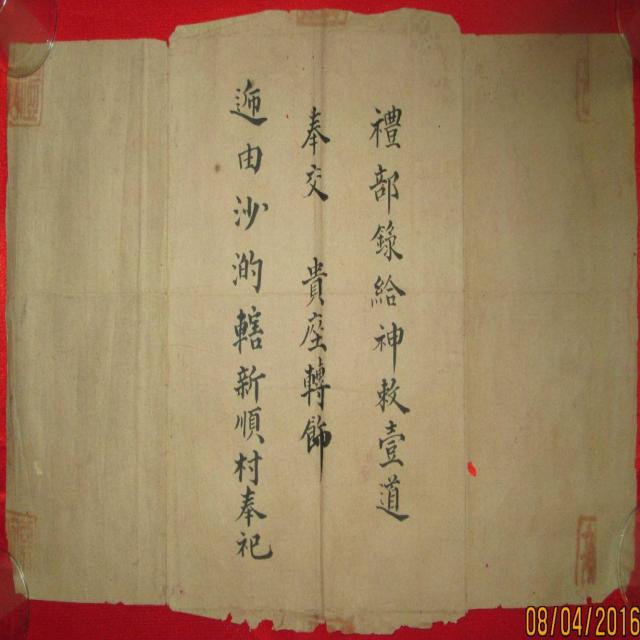 禮部錄給神敕壹道
奉交 貴座轉飾
遞由沙㴿轄新順村奉祀
08/04/2016